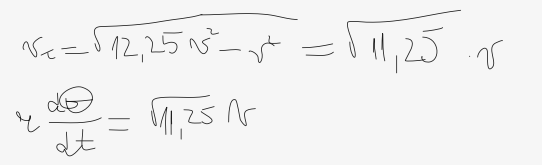 v_t = √(12,25 v² - v²) = √(11,25) · v
r dθ/dt = √(11,25) v